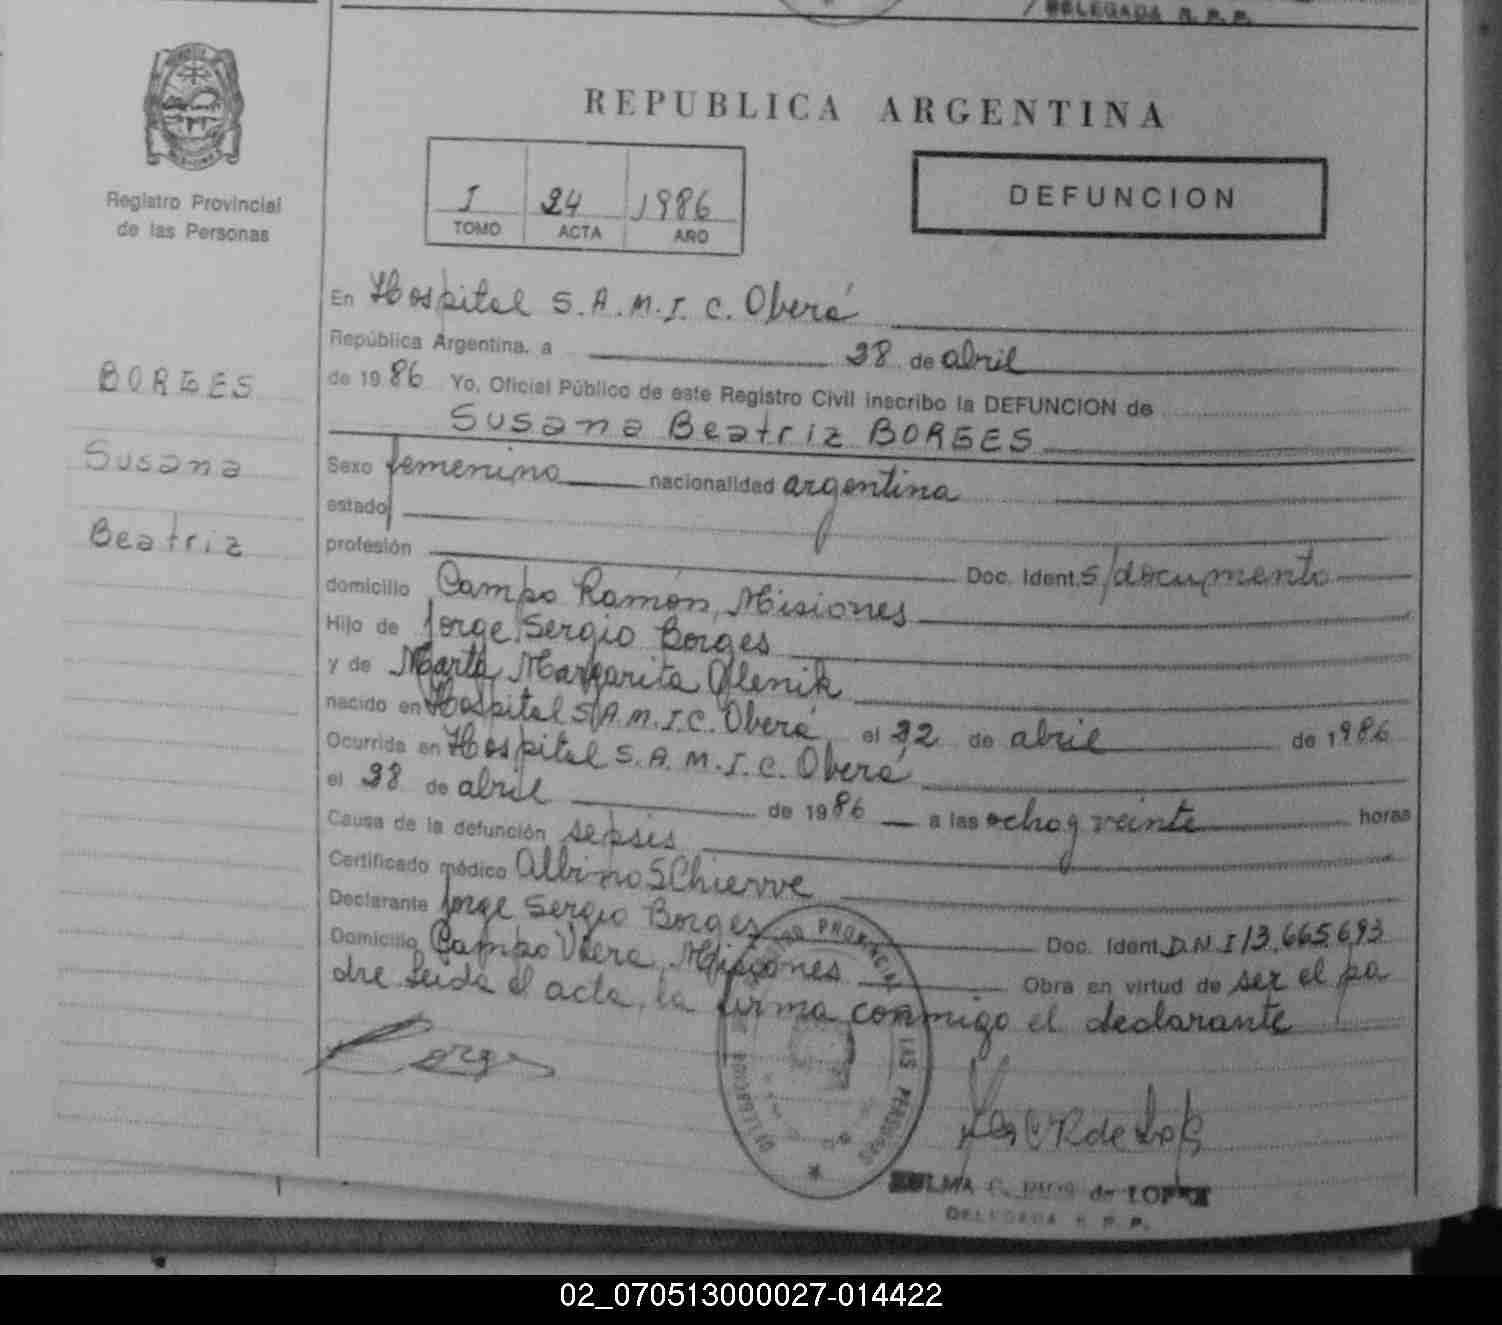 DELEGADA R. P. P.
REPUBLICA ARGENTINA
Registro Provincial
de las Personas
I 24 1986
TOMO ACTA AÑO
DEFUNCION
BORGES
Susana
Beatriz
En Hospital S.A.M.I.C. Oberá
República Argentina, a 28 de abril
de 1986 Yo, Oficial Público de este Registro Civil inscribo la DEFUNCION de
Susana Beatriz BORGES
Sexo femenino nacionalidad argentina
estado
profesión Doc. Ident. s/documento
domicilio Campo Ramón, Misiones
Hijo de Jorge Sergio Borges
y de Marta Margarita Olenik
nacido en Hospital S.A.M.I.C. Oberá el 22 de abril de 1986
Ocurrida en Hospital S.A.M.I.C. Oberá
el 28 de abril de 1986 a las ocho y veinte horas
Causa de la defunción sepsis
Certificado médico Albino
Declarante Jorge Sergio Borges Doc. Ident. D.N.I 13.665.693
Domicilio Campo Viera, Misiones Obra en virtud de ser el pa
dre Leida el acta, la firma conmigo el declarante
DELEGADA R. P. P.
02_070513000027-014422